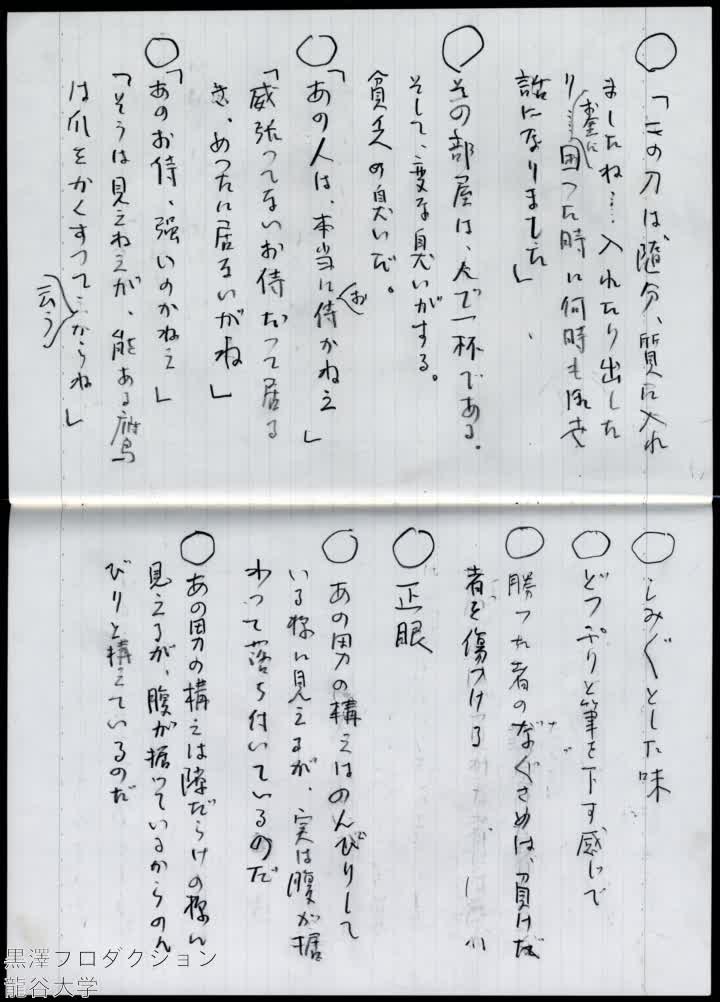 ○「この刀は随分、質に入れ
ましたね…入れたり出した
り……困った時に何時もお世
お蔭に
話になりました」
○その部屋は、人で一杯である。
そして、変な臭いがする。
貧乏の臭いだ。
○「あの人は、本当に侍かねえ」
お
「威張ってないお侍だって居る
さ、めったに居ないがね」
○「あのお侍、強いのかねえ」
「そうは見えねえが、能ある鷹
は爪をかくすって…からね」
云う
○しみぐとした味
○どっぷりと筆を下す感じで
○勝った者のなぐさめは、負けた
者を傷つける
○正眼
○あの男の構えはのんびりして
いる様に見えるが、実は腹が据
わって落ち付いているのだ
○あの男の構えは隙だらけの様に
見えるが、腹が据っているからのん
びりと構えているのだ
黒澤プロダクション
龍谷大学